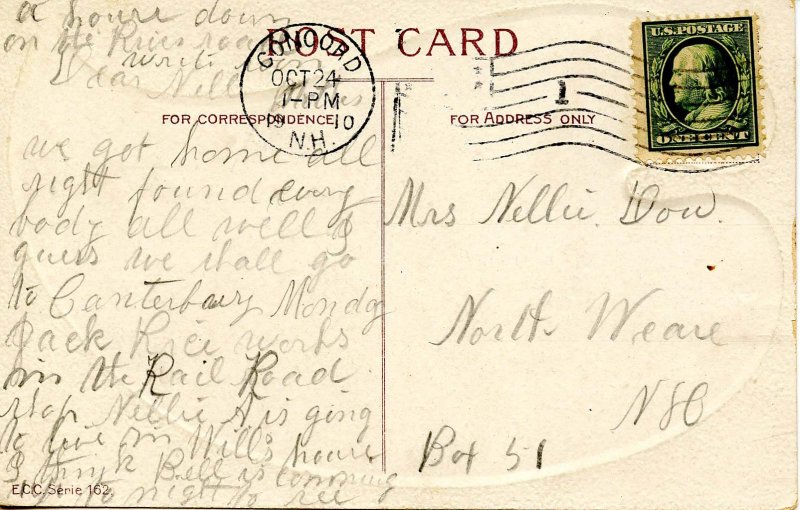 a house down
on the River road
write soon
POST CARD
CONCORD
OCT 24
1-PM
19 10
N.H.
1
U.S. POSTAGE
ONE CENT
Dear Nellie
FOR CORRESPONDENCE
FOR ADDRESS ONLY
we got home all
right found every
body all well I
guess we shall go
to Canterbury Monday
Jack Rice works
in the Rail Road
shop Nellie & is going
to live in Wills house
I think Bell is comming
to night to see
E.C.C. Serie 162.
Mrs Nellie Dow.
North Weare
NH
Box 51